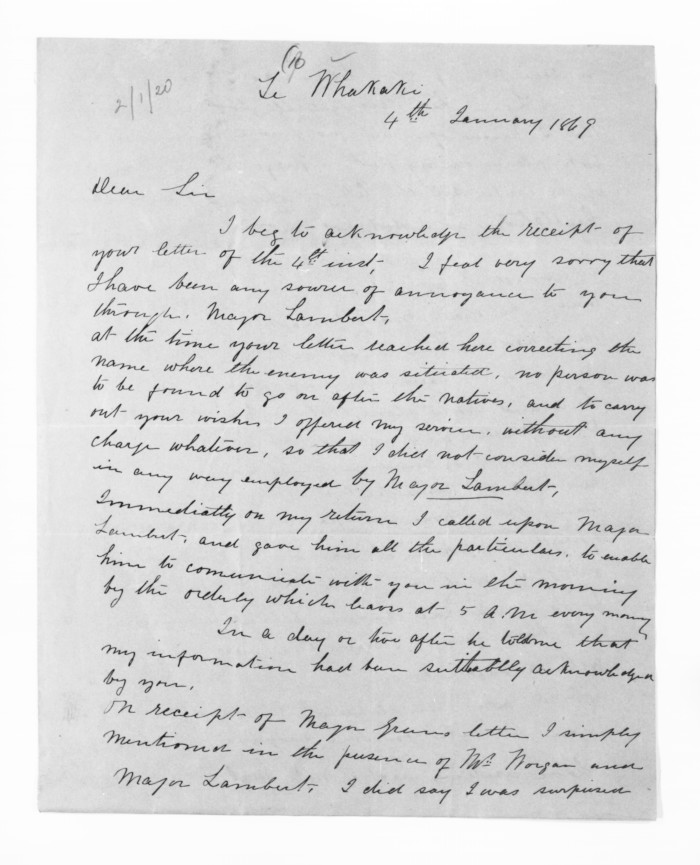 2/1/20
Te Whakaki
4th January 1869
Dear Sir
I beg to acknowledge the receipt of
your letter of the 4th inst, I feel very sorry that
I have been any source of annoyance to you
through, Major Lambert,
at the time your letter reached here correcting the
name where the enemy was situated, no person was
to be found to go on after the natives, and to carry
out your wishes I offered my service, without any
charge whatever, so that I did not consider myself
in any way employed by Major Lambert,
Immediatly on my return I called upon Major
Lambert, and gave him all the particulars. to enable
him to comunicate with you in the morning
by the orderly which leaves at 5 A.M every morning
In a day or two after he told me that
my information had been acknowledged
by you,
On receipt of Major letter I simply
mentioned in the presence of Mr. Worgan and
Major Lambert, I did say I was surprised